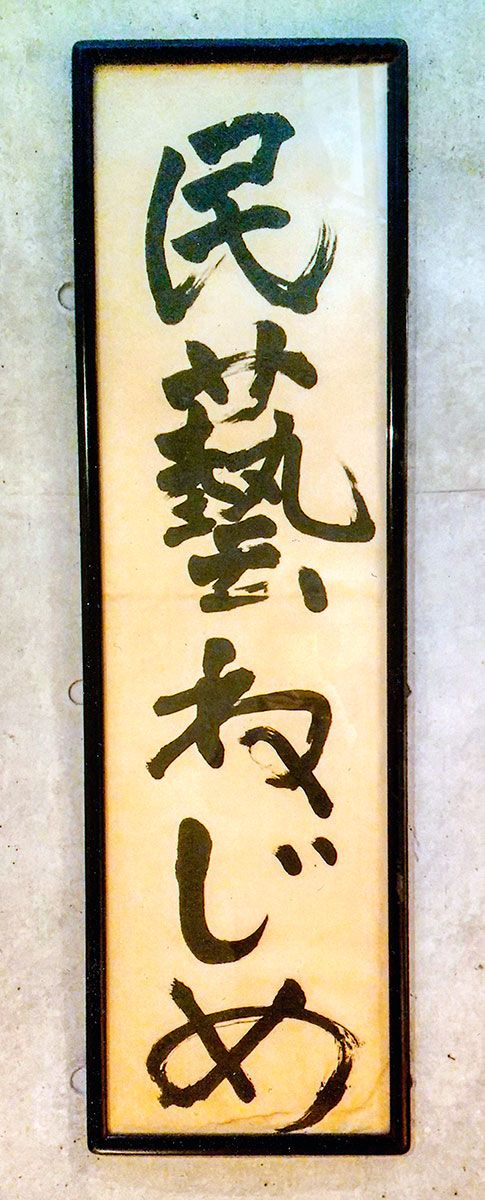 民藝ねじめ